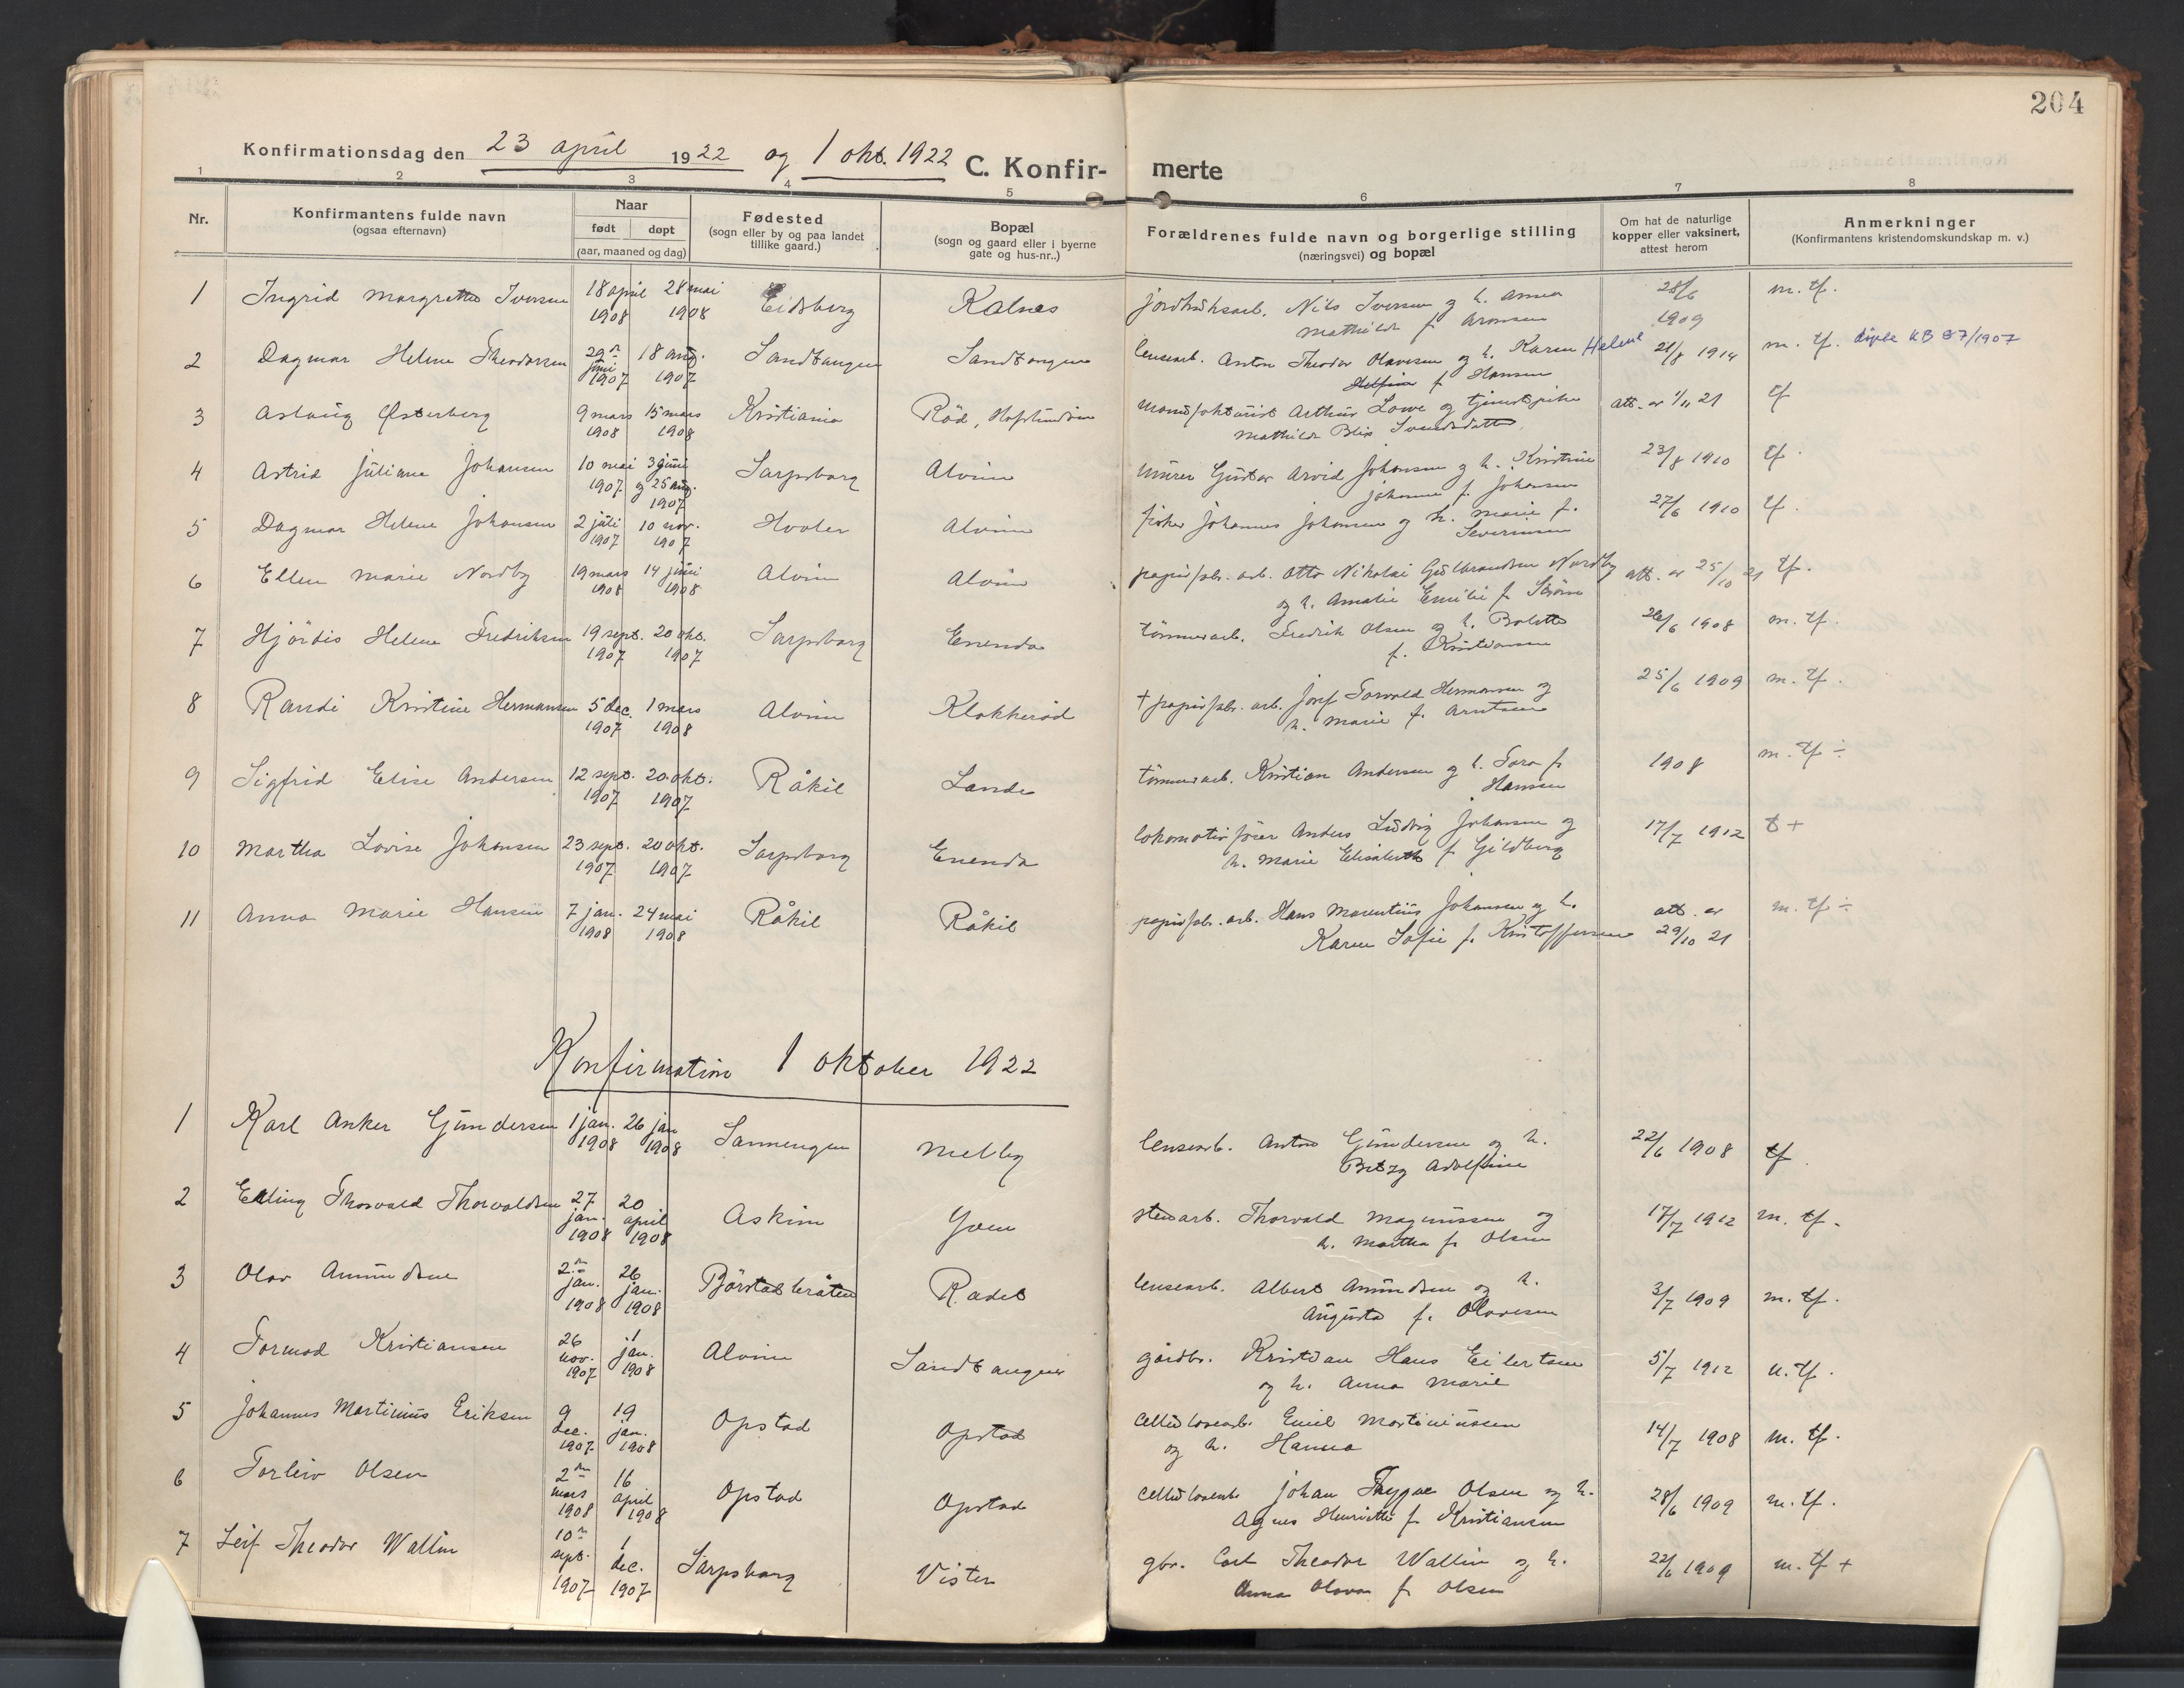 204
Konfirmationsdag den 23 april 1922 og 1 okt. 1922 C. Konfir- merte
1 2 3 4 5 6 7 8
Nr.
Konfirmantens fulde navn
(ogsaa efternavn)
Naar
født døpt
(aar, maaned og dag)
Fødested
(sogn eller by og paa landet
tillike gaard.)
Bopæl
(sogn og gaard eller i byerne
gate og hus-nr..)
Forældrenes fulde navn og borgerlige stilling
(næringsvei) og bopæl
Om hat de naturlige
kopper eller vaksinert,
attest herom
Anmerkninger
(Konfirmantens kristendomskundskap m. v.)
1 Ingrid Margrethe Iversen 18 april 28 mai Eidsberg Kalnes jordbruksarb. Nils Iversen og h. Anna 28/6 m. tf.
1908 1908 Mathilde f. Aronsen 1909
2 Dagmar Helene Theodorsen 29 juni 18 aug. Sandtangen Sandtangen lensearb. Anton Theodor Olavesen og h. Karen Helene 21/8 1914 m. tf. døpte KB 87/1907
1907 1907 f. Hansen
3 Aslaug Østerberg 9 mars 15 mars Kristiania Röd, Hafslundsøen Manufakturist Arthur Lowe og tjenestepike att. av 1/11 21 tf
1908 1908 Mathilde Blix Svendsdatter
4 Astrid Juliane Johansen 10 mai 3 juni Sarpsborg Alvim Murer Gustav Arvid Johansen og h. Kristine 23/8 1910 tf.
1907 og 25 aug. Johanne f. Johansen
1907
5 Dagmar Helene Johansen 2 juli 10 nov. Hvaler Alvim fisker Johannes Johansen og h. Marie f. 27/6 1910 tf.
1907 1907 Severinsen
6 Ellen Marie Nordby 19 mars 14 juni Alvim Alvim papirfabr. arb. Otto Nikolai Gulbrandsen Nordby att. av 25/10 21 tf.
1908 1908 og h. Amalie Emilie f. Ström
7 Hjördis Helene Fredriksen 19 sept. 20 okt. Sarpsborg Enenda tömmerarb. Fredrik Olsen og h. Bolette 26/6 1908 m. tf.
1907 1907 f. Kristiansen
8 Randi Kristine Hermansen 5 dec. 1 mars Alvim Klokkeröd + papirfabr. arb. Josef Torvald Hermansen og 25/6 1909 m. tf.
1907 1908 h. Marie f. Arntsen
9 Sigfrid Elise Andersen 12 sept. 20 okt. Råkil Lande tömmerarb. Kristian Andersen og h. Tora f. 1908 m. tf ÷
1907 1907 Hansen
10 Martha Lovise Johansen 23 sept. 20 okt. Sarpsborg Enenda lokomotivförer Anders Ludvig Johansen og 17/7 1912 t +
1907 1907 h. Marie Elisabeth f. Gjildberg
11 Anna Marie Hansen 7 jan. 24 mai Råkil Råkil papirfabr. arb. Hans Marentius Johansen og h. att. av m. tf ÷
1908 1908 Karen Sofie f. Kristoffersen 29/10 21
Konfirmation 1 oktober 1922
1 Karl Anker Gundersen 1 jan. 26 jan Sannengen Melby lensearb. Anton Gundersen og h. 22/6 1908 tf.
1908 1908 Betzy Adolfine
2 Erling Thorvald Thorvaldsen 27 jan. 20 april Askim Yven stenarb. Thorvald Magnussen og 17/7 1912 m. tf.
1908 1908 h. Martha f. Olsen
3 Olav Amundsen 2 jan. 26 jan. Börstadbråten Radet lensearb. Albert Amundsen og h. 3/7 1909 m. tf.
1908 1908 Augusta f. Olavesen
4 Tormod Kristiansen 26 nov. 1 jan. Alvim Sandtangen gårdbr. Kristian Hans Eilertsen 5/7 1912 u. tf.
1907 1908 og h. Anna Marie
5 Johannes Martinius Eriksen 9 dec. 19 jan. Opstad Opstad cellulosearb. Emil Martiniussen 14/7 1908 m. tf.
1907 1908 og h. Hanna
6 Torleiv Olsen 2 mars 16 april Opstad Opstad cellulosearb. Johan Trygve Olsen og h. 28/6 1909 m. tf.
1908 1908 Agnes Henriette f. Kristiansen
7 Leif Theodor Wallin 10 sept. 1 dec. Sarpsborg Vister gbr. Carl Theodor Wallin og h. 22/6 1909 m. tf +
1907 1907 Anna Olava f. Olsen